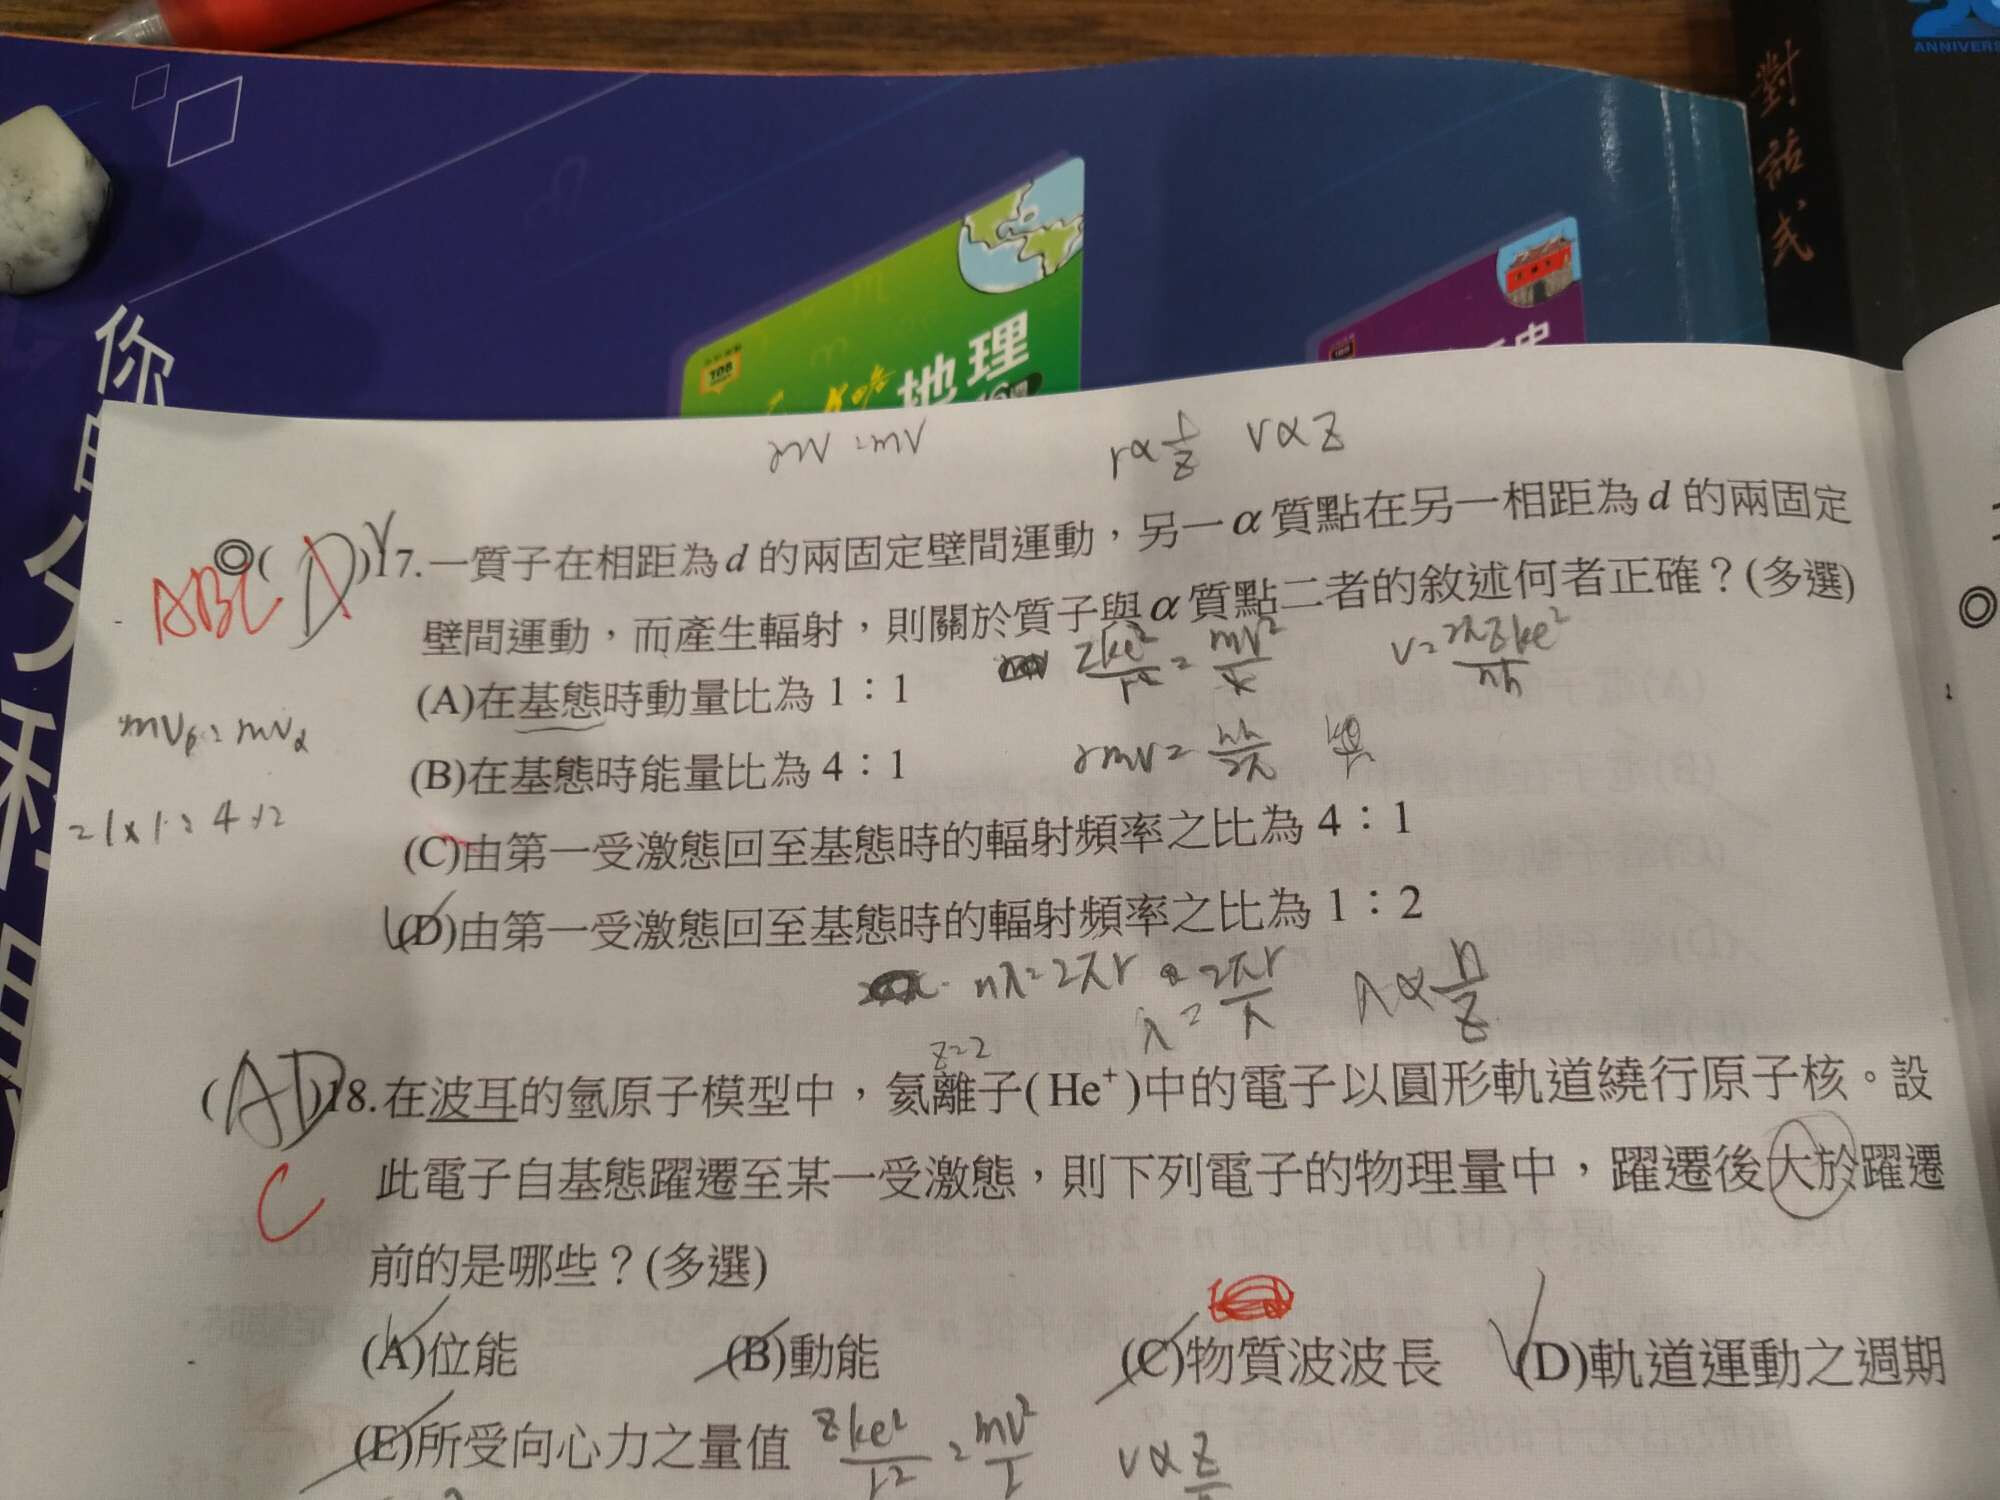 ANNIVERS
對話式
你
分科
108
地理
rmv = mv
r∝1/Z v∝Z
ABC
◎( D )17.一質子在相距為d的兩固定壁間運動，另一α質點在另一相距為d的兩固定
壁間運動，而產生輻射，則關於質子與α質點二者的敘述何者正確？(多選)
Zke²/r² = mv²/r v=2πZke²/nh
(A)在基態時動量比為1：1
mvₚ = mvα
rmv = nh/2π
(B)在基態時能量比為4：1
=1×1=4×2
(C)由第一受激態回至基態時的輻射頻率之比為4：1
(D)由第一受激態回至基態時的輻射頻率之比為1：2
nλ=2πr λ=2πr/n λ∝n/Z
Z=2
( AD )18.在波耳的氫原子模型中，氦離子(He⁺)中的電子以圓形軌道繞行原子核。設
C
此電子自基態躍遷至某一受激態，則下列電子的物理量中，躍遷後大於躍遷
前的是哪些？(多選)
(A)位能 (B)動能 (C)物質波波長 (D)軌道運動之週期
(E)所受向心力之量值 Zke²/r² = mv²/r v∝Z